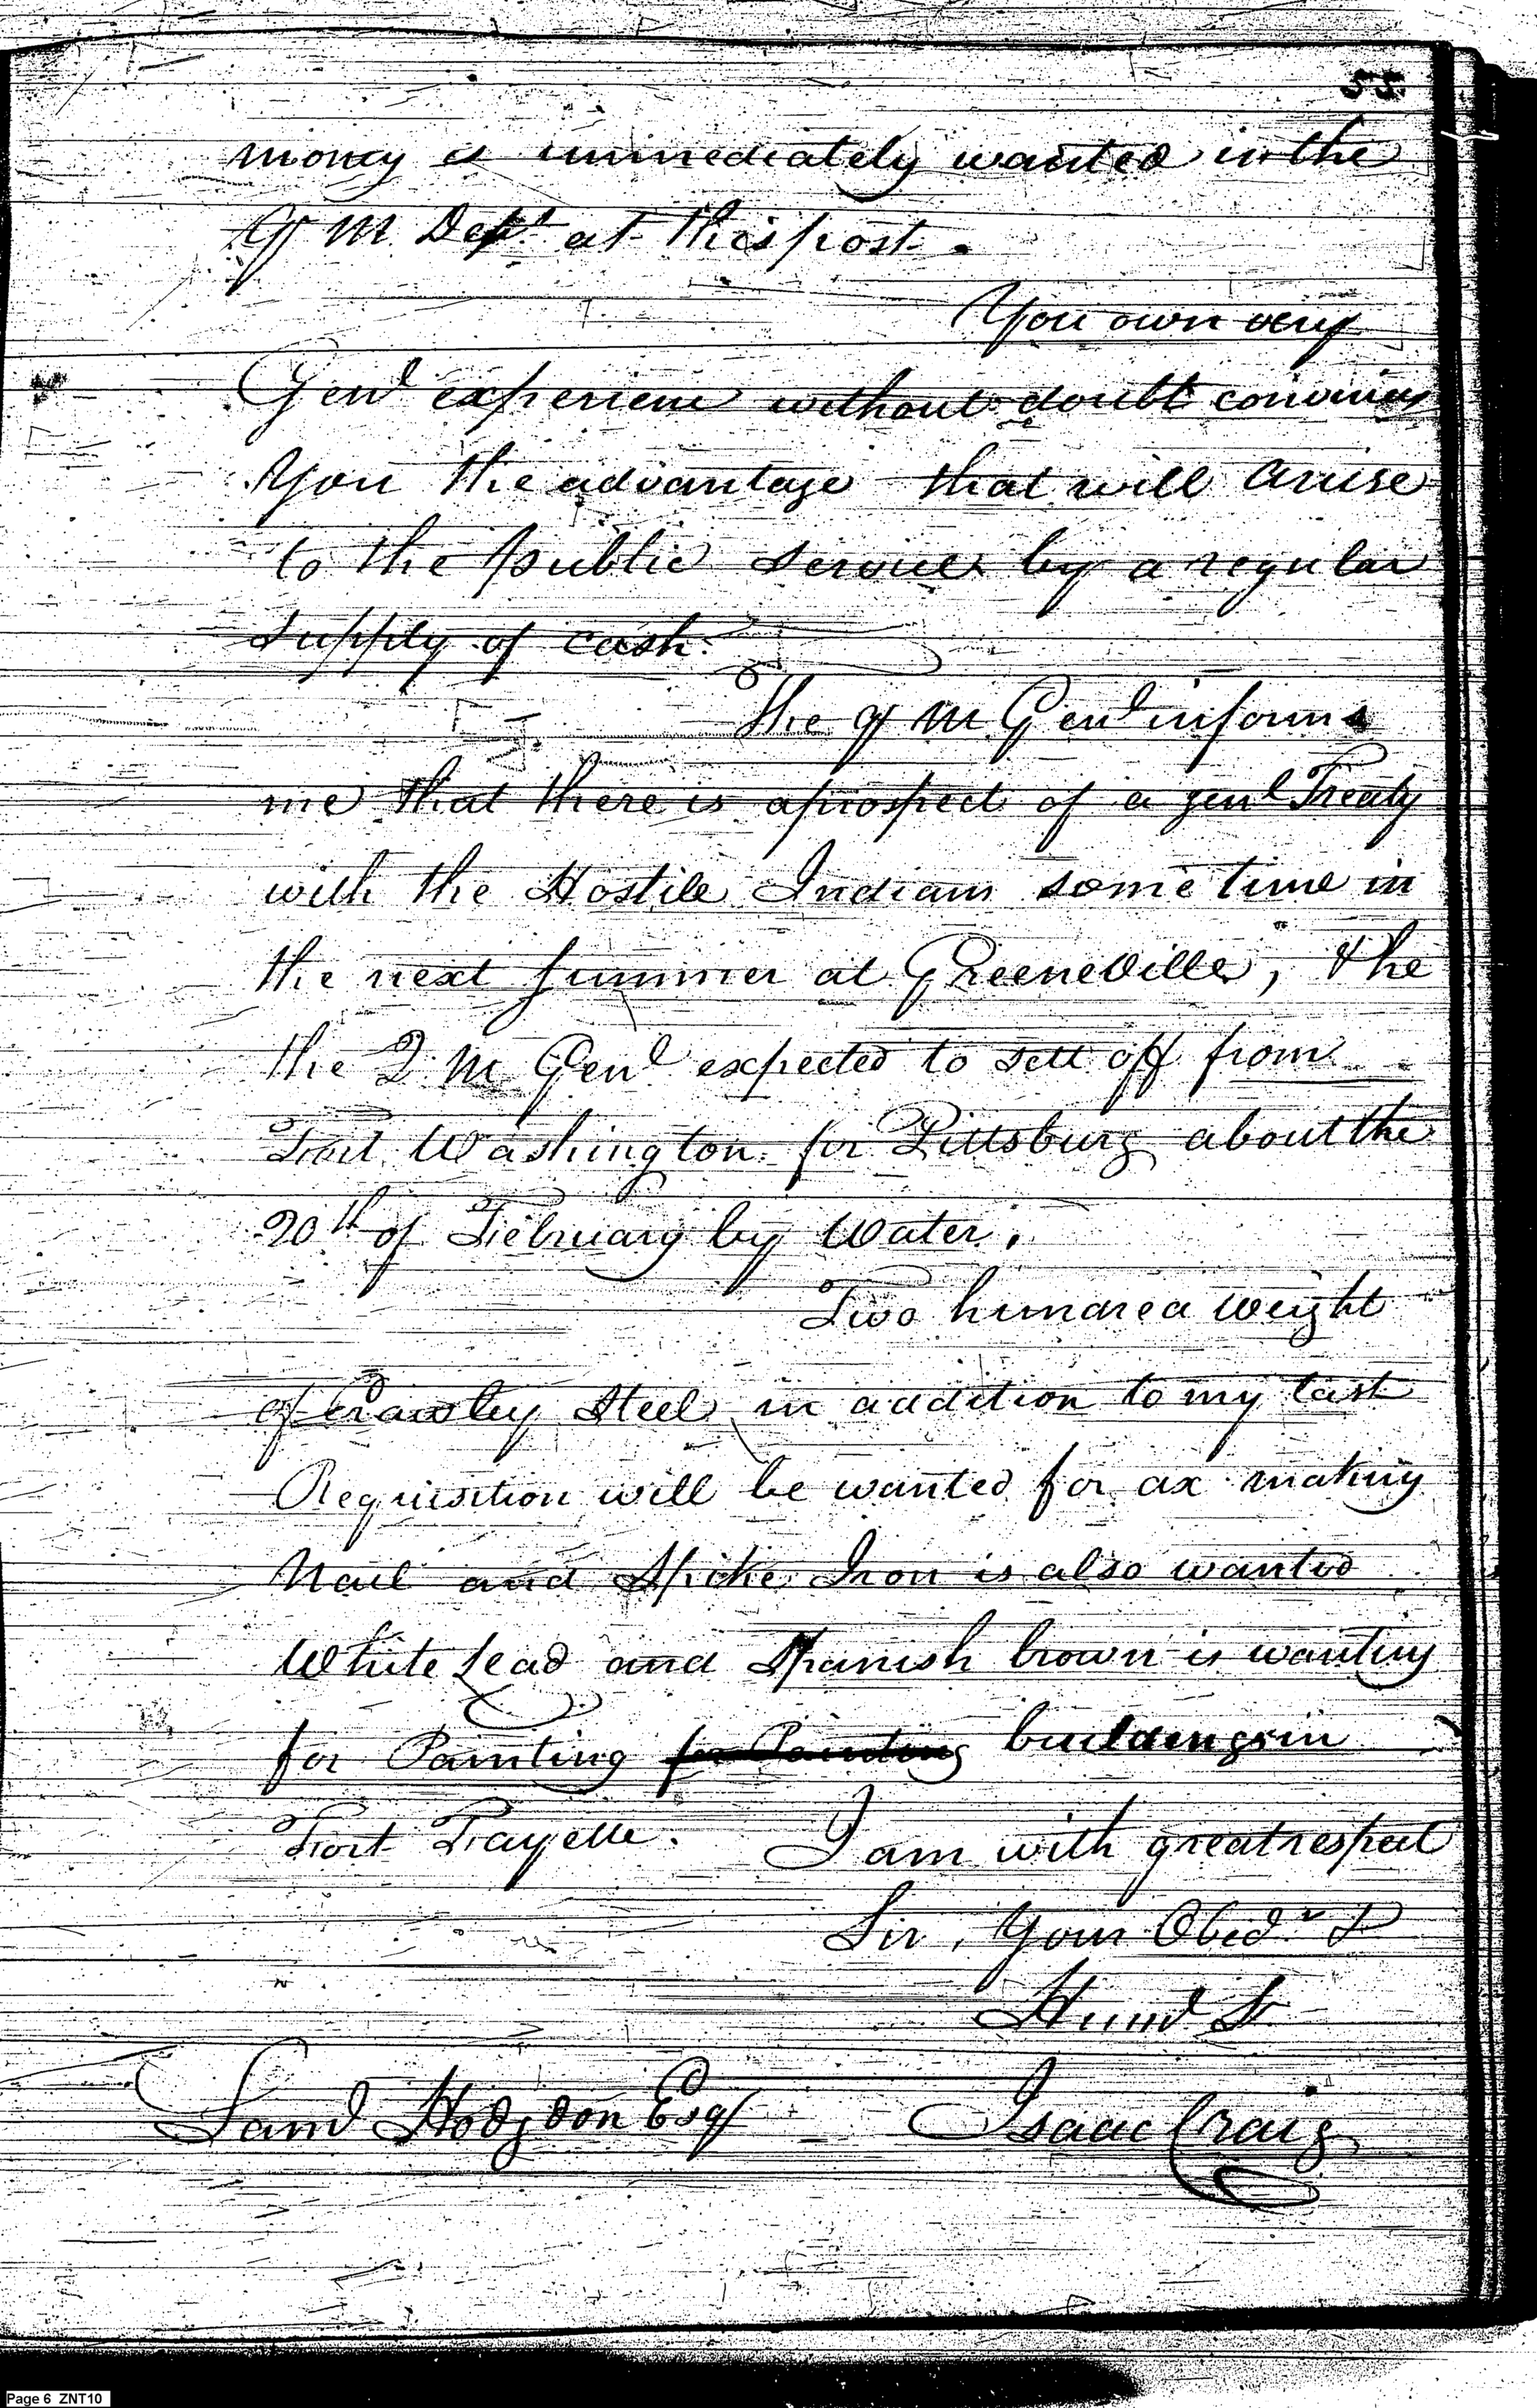 55.
money is immediately wanted in the
Q M Dept at this post.
You own very
Genl experience without doubt convinces
you the advantage that will arise
to the public service by a regular
supply of cash.
The Q M Genl informs
me that there is a prospect of a genl Treaty
with the Hostile Indians some time in
the next summer at GreeneVille, & he
the Q M Genl expected to sett off from
Fort Washington for Pittsburg about the
20th of February by Water.
Two hundred weight
of Crawley Steel in addition to my last
Requisition will be wanted for ax making
Nail and Spike Iron is also wanted
White Lead and Spanish brown is wanting
for Painting for Painting buildings in
Fort Fayette. I am with great respect
Sir, Your Obedt &
Huml St
Saml Hodgdon Esqr Isaac Craig
Page 6 ZNT10